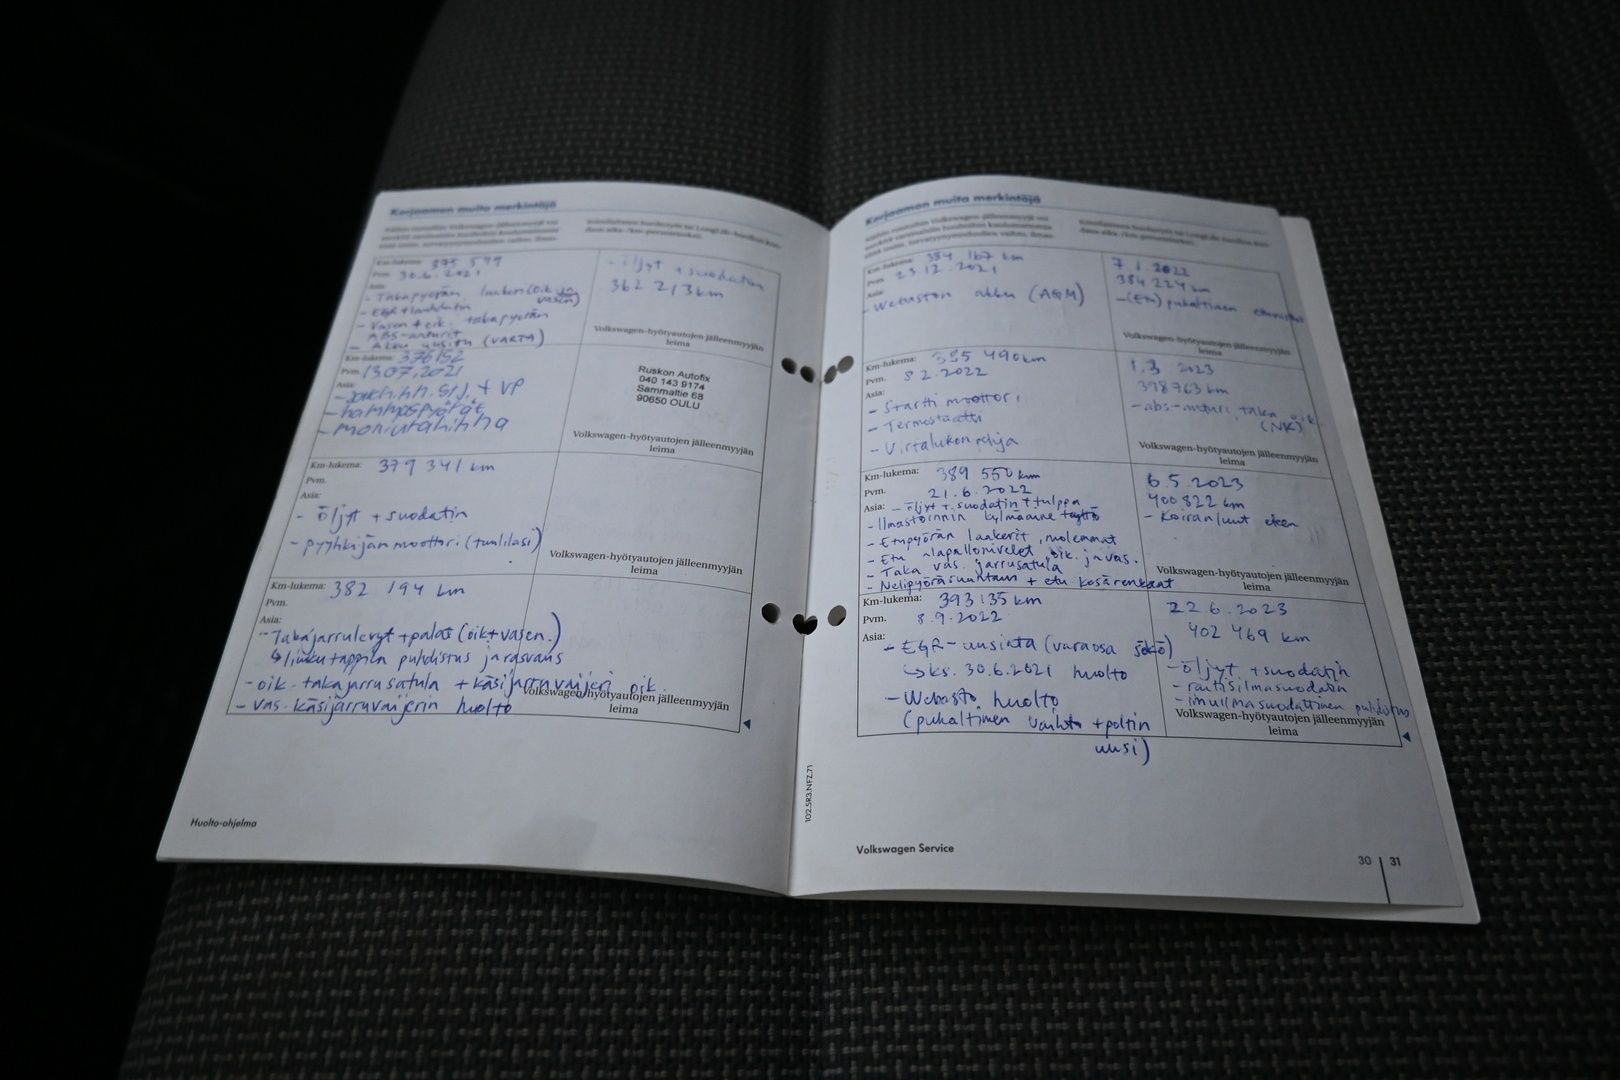 Korjaamon muita merkintöjä
Km-lukema: 375 599
Pvm. 30.6.2021
Asia:
- Takapyörän laakeri (oik ja
vasen)
- EGR + lauhdutin
- Vasen + oik. takapyörän
ABS-anturit
- Akku uusittu (VARTA)
- öljyt + suodatin
362 213 km
Volkswagen-hyötyautojen jälleenmyyjän
leima
Km-lukema: 376152
Pvm. 13.07.2021
Asia:
- jakohihn. srj. + VP
- hammaspyörät
- moniurahihna
Ruskon Autofix
040 143 9174
Sammaltie 68
90650 OULU
Volkswagen-hyötyautojen jälleenmyyjän
leima
Km-lukema: 379 341 km
Pvm.
Asia:
- öljyt + suodatin
- pyyhkijänmoottori (tuulilasi)
Volkswagen-hyötyautojen jälleenmyyjän
leima
Km-lukema: 382 194 km
Pvm.
Asia:
- Takajarrulevyt + palat (oik + vasen.)
↳ liukutappien puhdistus ja rasvaus
- oik. takajarrusatula + käsijarruvaijeri oik.
- vas. käsijarruvaijerin huolto
Volkswagen-hyötyautojen jälleenmyyjän
leima
Huolto-ohjelma
Korjaamon muita merkintöjä
Km-lukema: 384 167 km
Pvm. 23.12.2021
Asia:
- Webaston akku (AGM)
7.1.2022
384 224 km
- (Etu) puhaltimen etuvastus
Volkswagen-hyötyautojen jälleenmyyjän
leima
Km-lukema: 385 490 km
Pvm. 8.2.2022
Asia:
- Startti moottori
- Termostaatti
- Virtalukon pohja
1.3.2023
398763 km
- abs-anturi taka oik.
(NK)
Volkswagen-hyötyautojen jälleenmyyjän
leima
Km-lukema: 389 550 km
Pvm. 21.6.2022
Asia: - öljyt + suodatin + tulppa
- Ilmastoinnin kylmäaine täyttö
- Etupyörän laakerit, molemmat
- Etu alapallonivelet oik. ja vas.
- Taka vas. jarrusatula
- Nelipyöräsuuntaus + etu kesärenkaat
6.5.2023
400 822 km
- Koiranluut eteen
Volkswagen-hyötyautojen jälleenmyyjän
leima
Km-lukema: 393 135 km
Pvm. 8.9.2022
Asia:
- EGR-uusinta (varaosa sökö)
↳ ks. 30.6.2021 huolto
- Webasto huolto
(puhaltimen vaihto + poltin
uusi)
22.6.2023
402 469 km
- öljyt + suodatin
- raitisilmasuodatin
- imuilmasuodattimen puhdistus
Volkswagen-hyötyautojen jälleenmyyjän
leima
102.5R3.NFZ.71
Volkswagen Service
30 | 31